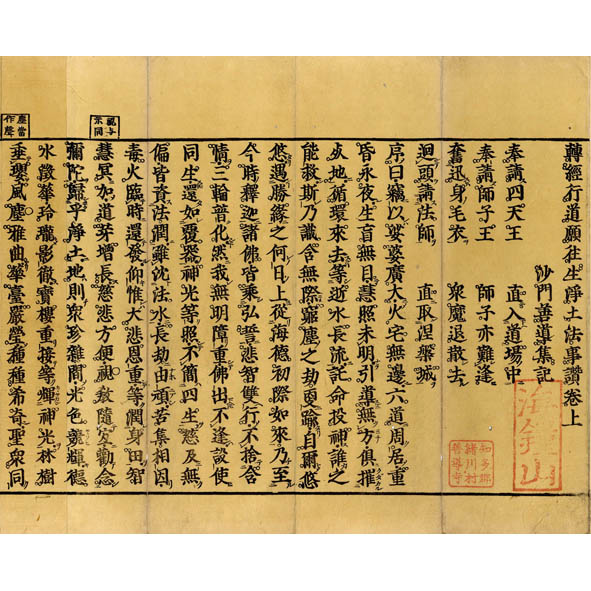 轉經行道願往生淨土法事讚卷上
沙門善導集記
奉請四天王　直入道場中
奉請師子王　師子亦難逢
奮迅身毛衣　衆魔退散去
迴頭請法師　直取涅槃城
序曰竊以娑婆廣大火宅無邊六道周居重
昏永夜生盲無目慧照未明引導無方俱摧
死地循環來去等逝水長流託命投神誰之
能救斯乃識含無際窮塵之劫更踰自爾悠
悠遇勝緣之何日上從海德初際如來乃至
今時釋迦諸佛皆乘弘誓悲智雙行不捨含
情三輪普化然我無明障重佛出不逢設使
同生還如覆器神光等照不簡四生慈及無
偏皆資法潤雖沈法水長劫由頑苦集相因
毒火臨時還發仰惟大悲恩重等潤身田智
慧冥加道芽增長慈悲方便視教隨宜勸念
彌陀歸乎淨土地則衆珍雜間光色競輝德
水澂華玲瓏影徹寶樓重接等輝神光林樹
垂瓔風塵雅曲華臺嚴瑩種種希奇聖衆同
視与
示同
塵當
作聲
海鐘山
知多郡
緒川村
善導寺